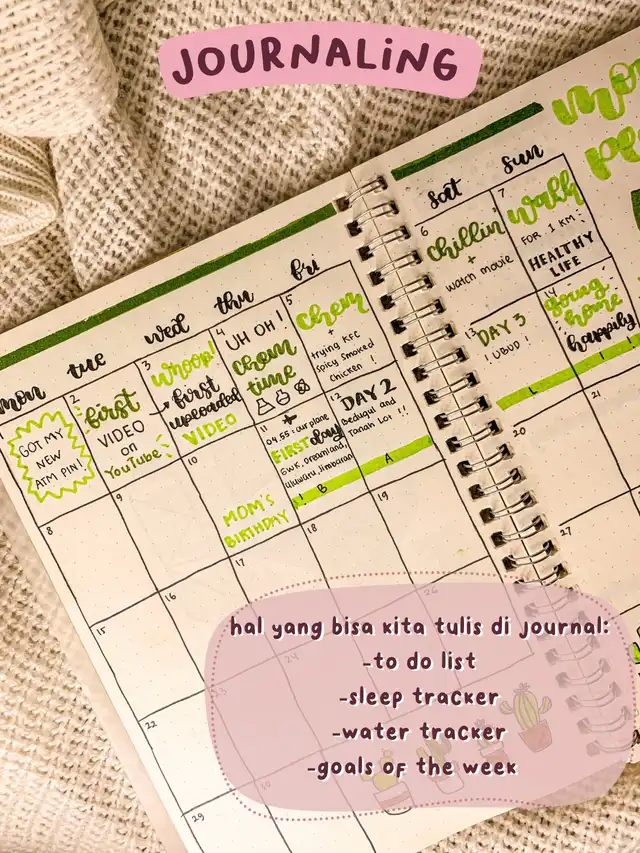 JOURNALING
mon
tue
wed
thu
fri
sat
sun
1
GOT MY
NEW
ATM PIN!
2
first
VIDEO
on
YouTube
3
Whoop!
first
uploaded
VIDEO
4
UH OH!
Chem
time
5
Chem
+
trying KFC
Spicy Smoked
Chicken !
6
chillin'
+
watch movie
7
Walk
FOR 1 KM!
HEALTHY
LIFE
8
9
10
MOM'S
BIRTHDAY
11
04.55 : our place
FIRST day
GWK, Dreamland,
Uluwatu, Jimbaran
12
DAY 2
Bedugul and
Tanah Lot !!
13
DAY 3
! UBUD !
14
going
home
happily
B
A
L
I
15
16
17
18
19
20
22
23
24
26
27
29
30
hal yang bisa kita tulis di journal:
-to do list
-sleep tracker
-water tracker
-goals of the week